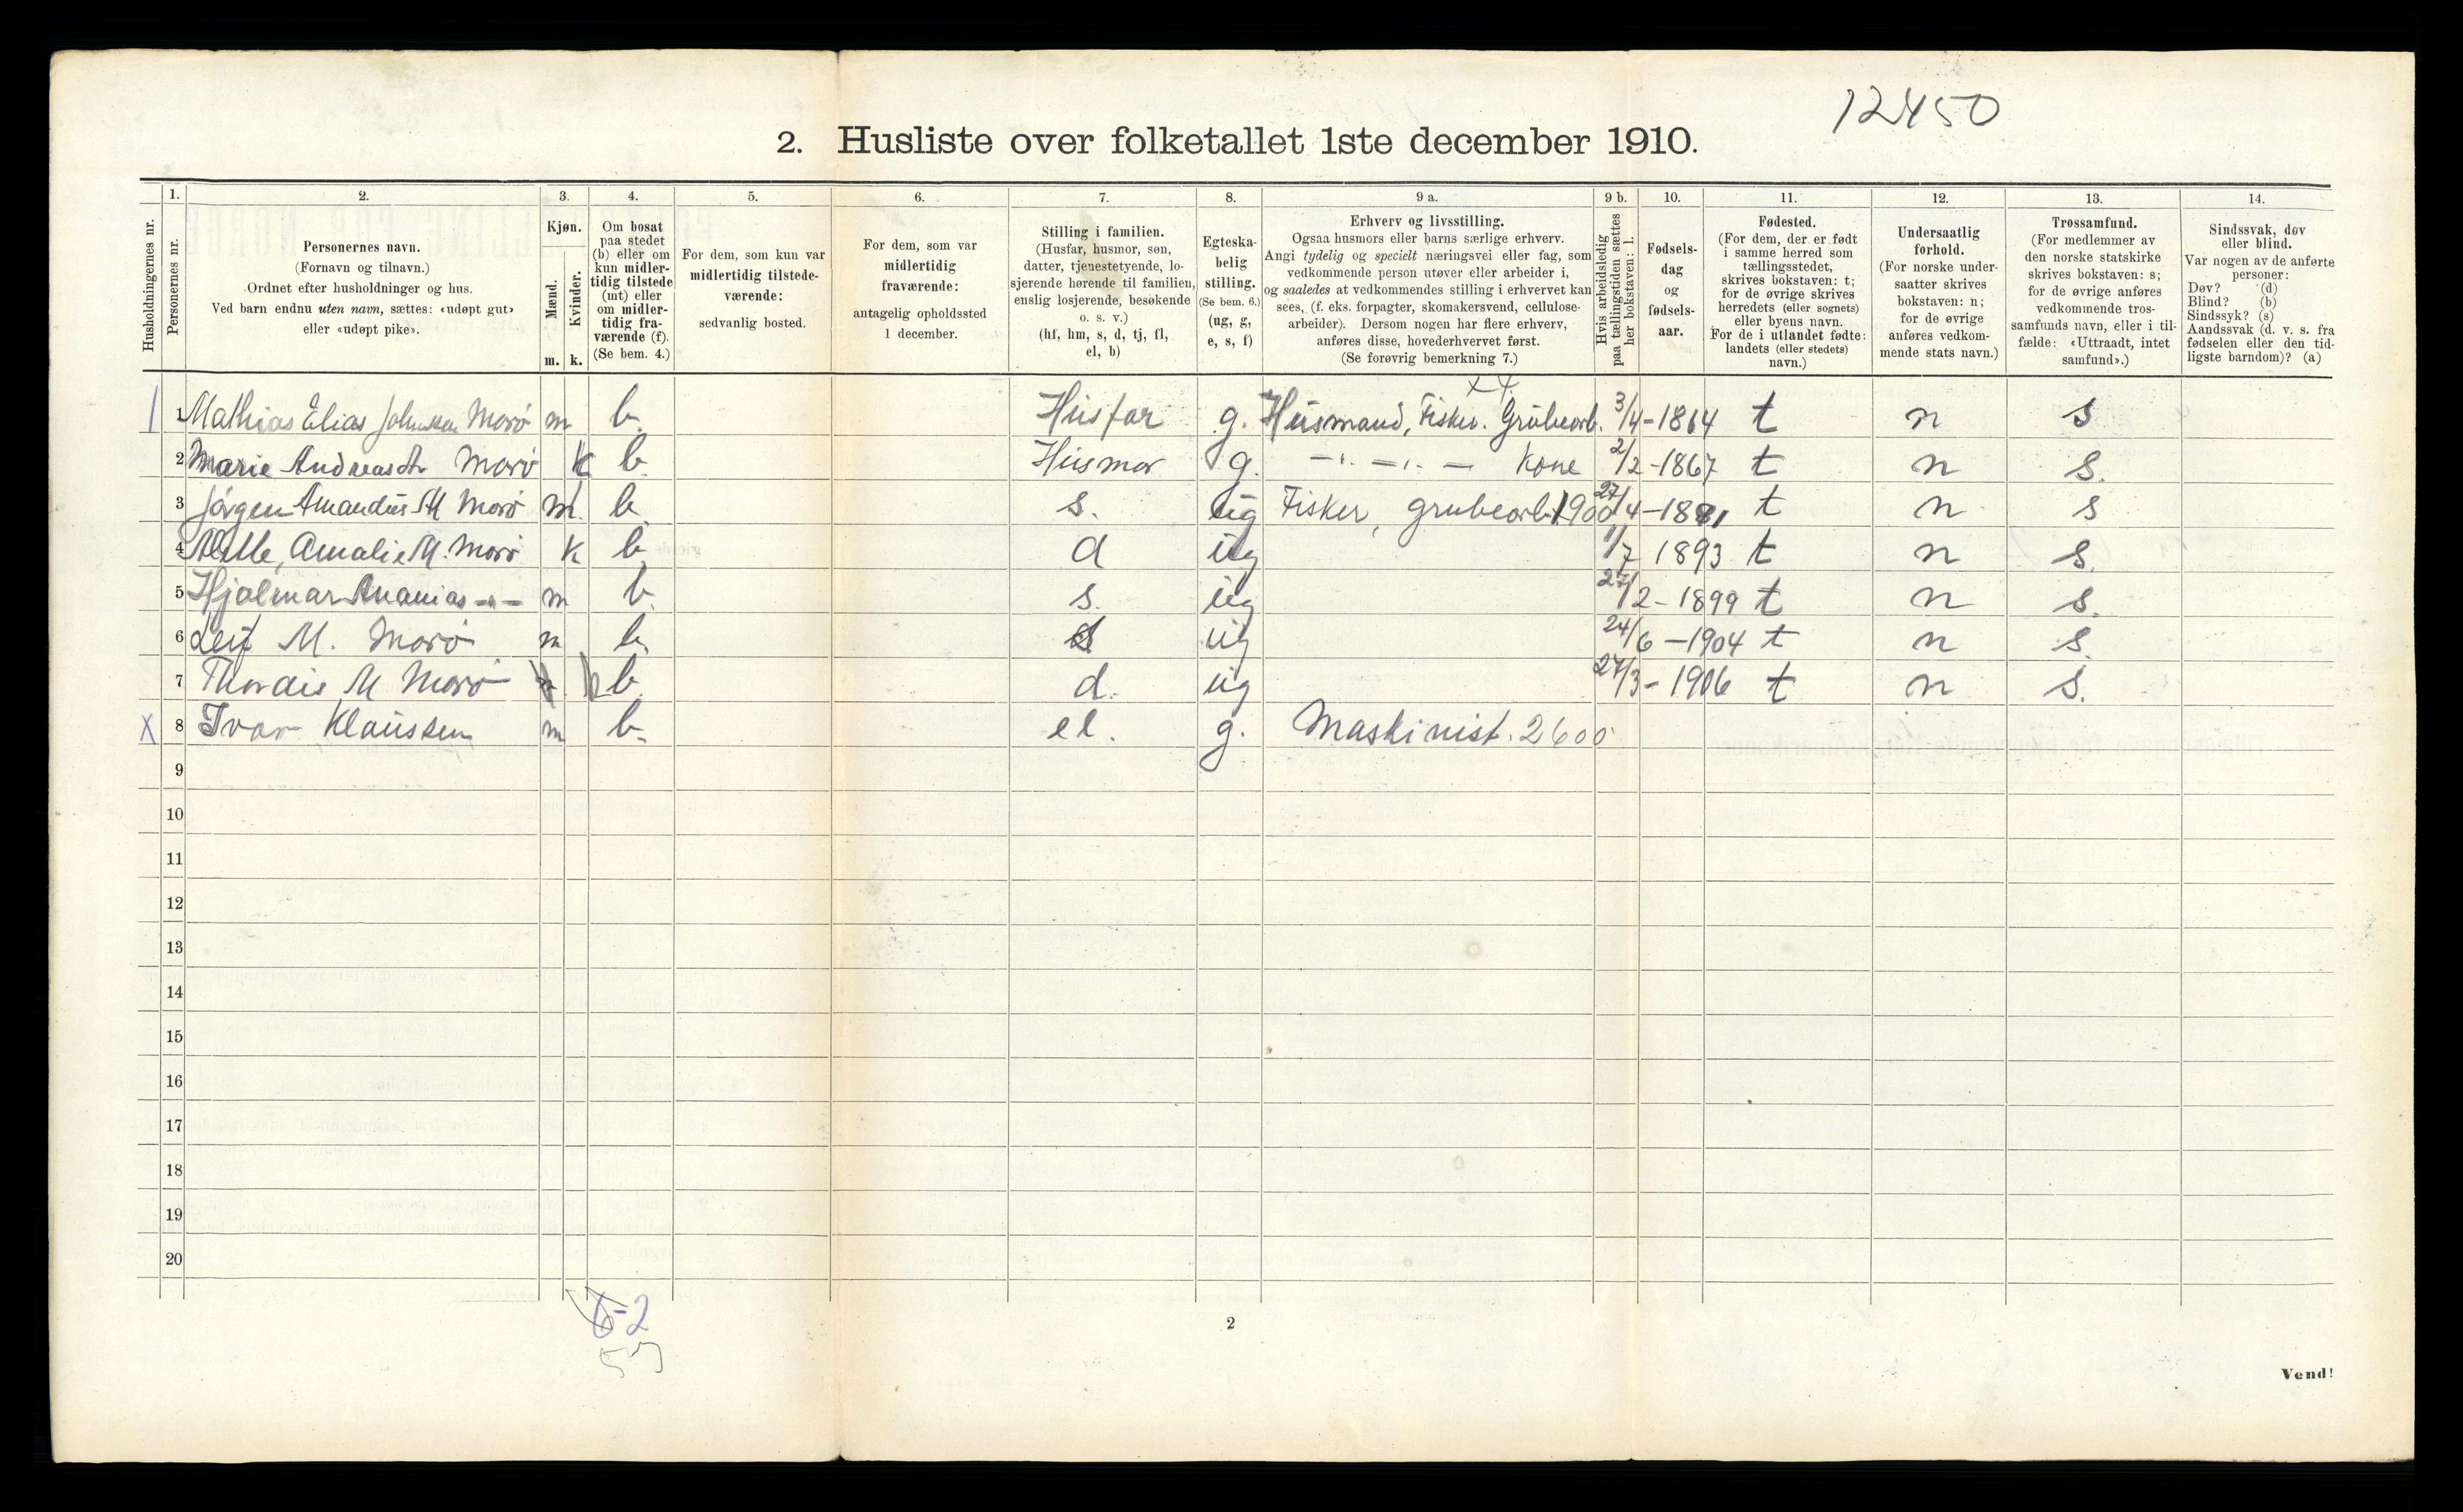 12450
2. Husliste over folketallet 1ste december 1910.
Husholdningernes nr.
1.
Personernes nr.
2.
Personernes navn.
(Fornavn og tilnavn.)
Ordnet efter husholdninger og hus.
Ved barn endnu uten navn, sættes: «udøpt gut»
eller «udøpt pike».
3.
Kjøn.
Mænd.
Kvinder.
m. k.
4.
Om bosat
paa stedet
(b) eller om
kun midler-
tidig tilstede
(mt) eller
om midler-
tidig fra-
værende (f).
(Se bem. 4.)
5.
For dem, som kun var
midlertidig tilstede-
værende:
sedvanlig bosted.
6.
For dem, som var
midlertidig
fraværende:
antagelig opholdssted
1 december.
7.
Stilling i familien.
(Husfar, husmor, søn,
datter, tjenestetyende, lo-
sjerende hørende til familien,
enslig losjerende, besøkende
o. s. v.)
(hf, hm, s, d, tj, fl,
el, b)
8.
Egteska-
belig
stilling.
(Se bem. 6.)
(ug, g,
e, s, f)
9 a.
Erhverv og livsstilling.
Ogsaa husmors eller barns særlige erhverv.
Angi tydelig og specielt næringsvei eller fag, som
vedkommende person utøver eller arbeider i,
og saaledes at vedkommendes stilling i erhvervet kan
sees, (f. eks. forpagter, skomakersvend, cellulose-
arbeider). Dersom nogen har flere erhverv,
anføres disse, hovederhvervet først.
(Se forøvrig bemerkning 7.)
9 b.
Hvis arbeidsledig
paa tællingstiden sættes
her bokstaven: l.
10.
Fødsels-
dag
og
fødsels-
aar.
11.
Fødested.
(For dem, der er født
i samme herred som
tællingsstedet,
skrives bokstaven: t;
for de øvrige skrives
herredets (eller sognets)
eller byens navn.
For de i utlandet fødte:
landets (eller stedets)
navn.)
12.
Undersaatlig
forhold.
(For norske under-
saatter skrives
bokstaven: n;
for de øvrige
anføres vedkom-
mende stats navn.)
13.
Trossamfund.
(For medlemmer av
den norske statskirke
skrives bokstaven: s;
for de øvrige anføres
vedkommende tros-
samfunds navn, eller i til-
fælde: «Uttraadt, intet
samfund».)
14.
Sindssvak, døv
eller blind.
Var nogen av de anførte
personer:
Døv? (d)
Blind? (b)
Sindssyk? (s)
Aandssvak (d. v. s. fra
fødselen eller den tid-
ligste barndom)? (a)
1 Mathias Elias Johnsen Morø m b. Husfar g. Husmand, Fisker. Grubearb. 3/4-1864 t n s
2 Marie Morø k b. Husmor g. -"- -"- - Kone 2/2-1867 t n s.
3 Jørgen Amandus M Morø m. b. s. ug Fisker, grubearb. 1900 27/4-1891 t n s
4 Amalie M. Morø k b. d ug 1/7 1893 t n s.
5 Hjalmar Ananias -"- m b. s. ug 27/2-1899 t n s.
6 Leif M. Morø m b. s ug 24/6-1904 t n s.
7 Thordis M Morø k b. d. ug 27/3-1906 t n s.
x 8 Ivar Klaussen m b. el. g. Maskinist. 2600
9
10
11
12
13
14
15
16
17
18
19
20
6-2
2
Vend!